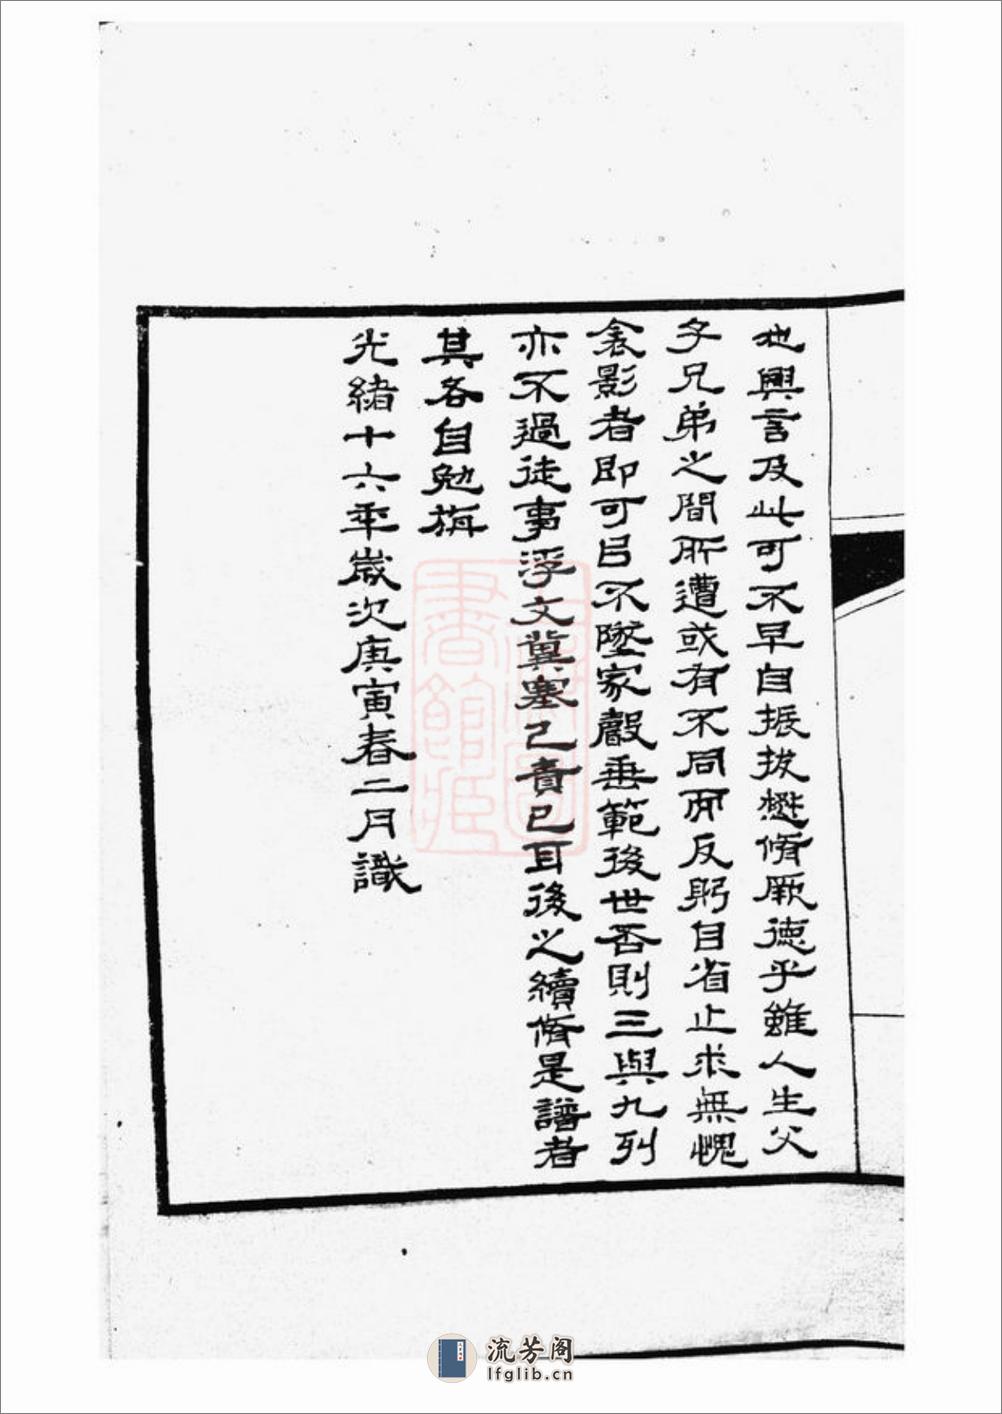 也興言及此可不早自振拔懋脩厥德乎雖人生父
子兄弟之間所遭或有不同而反躬自省止求無愧
衾影者即可㠯不墜家聲垂範後世否則三與九列
亦不過徒事浮文冀塞己責已耳後之續脩是譜者
其各自勉旃
光緒十六年歲次庚寅春二月識
上海圖
書館藏
流芳阁
lfglib.cn